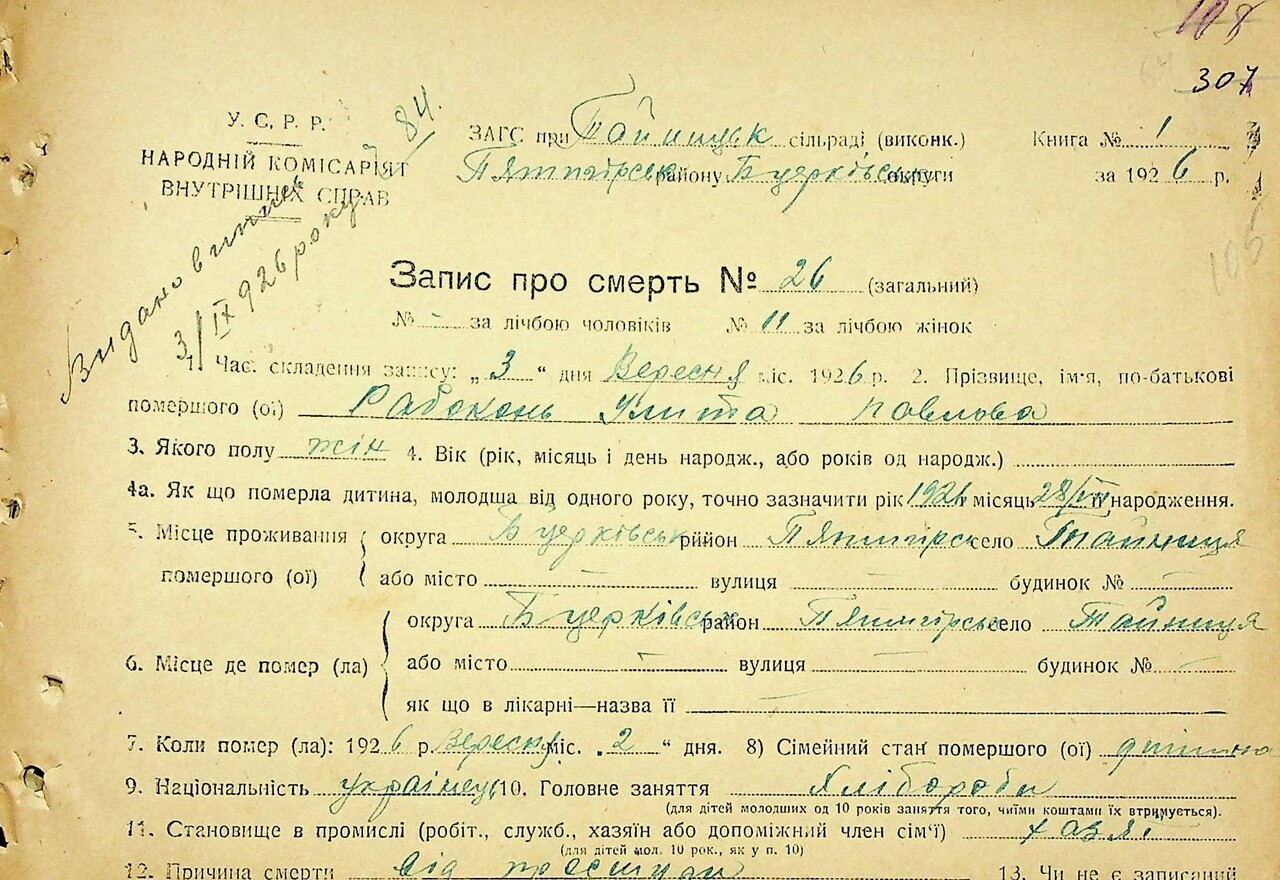 108
307
У. С. Р. Р.
НАРОДНІЙ КОМІСАРІЯТ
ВНУТРІШНІХ СПРАВ
84.
ЗАГС при сільраді (виконк.)
Пятигірськ району Бцерківськ округи
Книга № 1
за 1926 р.
105
Видано випись
3/IX 926 року
Запис про смерть № 26 (загальний)
№ - за лічбою чоловіків № 11 за лічбою жінок
1. Час. складення запису: „3“ дня Вересня міс. 1926 р. 2. Прізвище, ім'я, по-батькові
помершого (ої) Рабоконь Улита Павлова
3. Якого полу жін 4. Вік (рік, місяць і день народж., або років од народж.)
4а. Як що померла дитина, молодша від одного року, точно зазначити рік 1926 місяць 28/VII народження.
5. Місце проживання округа Бцерківськ район Пятигірськ село Тайниця
помершого (ої) або місто — вулиця — будинок № —
округа Бцерківськ район Пятигірськ село Тайниця
6. Місце де помер (ла) або місто — вулиця будинок № —
як що в лікарні—назва її —
7. Коли помер (ла): 1926 р. міс. „2“ дня. 8) Сімейний стан помершого (ої) дитина
9. Національність українец 10. Головне заняття Хлібороби
(для дітей молодших од 10 років заняття того, чиїми коштами їх втримується).
11. Становище в промислі (робіт., служб., хазяїн або допоміжний член сім'ї) хазяї
(для дітей мол. 10 рок., як у п. 10)
12. Причина смерти від 13. Чи не є записаний